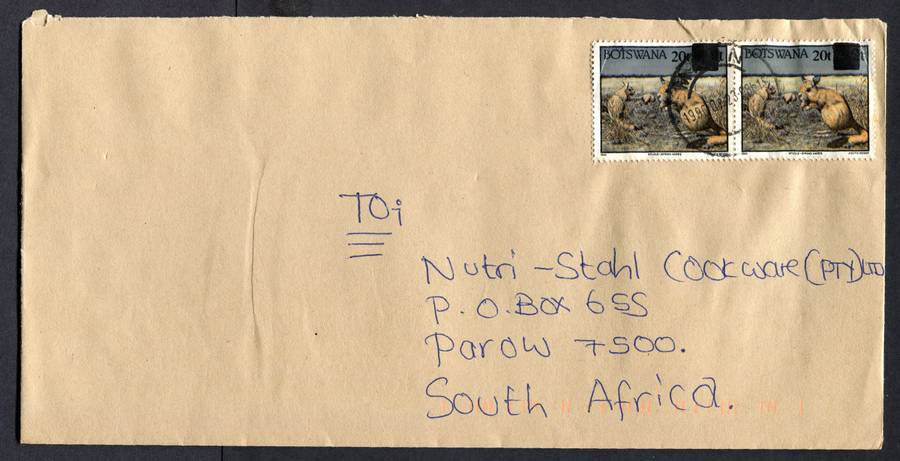 BOTSWANA 20t
BOTSWANA 20t
TO;
Nutri-Stahl Cookware (PTY) LTD
P.O. Box 655
Parow 7500.
South Africa.